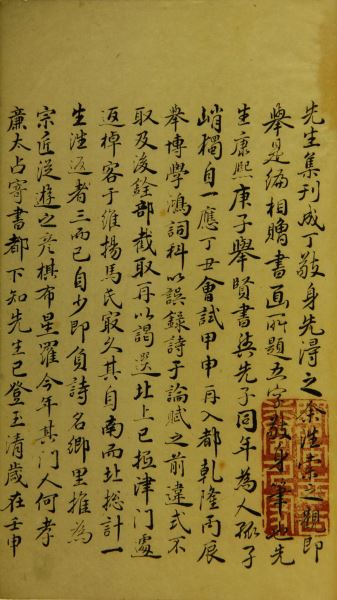 先生集刊成丁敬身先得之余往索之觀即
舉是編相贈書面所題五字敬身筆也先
生康熙庚子舉賢書與先子同年為人孤子
峭獨自一應丁丑會試甲申再入都乾隆丙辰
舉博學鴻詞科以誤錄詩于論賦之前違式不
取及後銓部截取再以謁選北上已抵津門處
返棹客于維揚馬氏最久其自南而北總計一
生往返者三而已自少即負詩名鄉里推為
宗匠從遊之彥棋布星羅今年其門人何孝
廉太占寄書都下知先生已登玉清歲在壬申